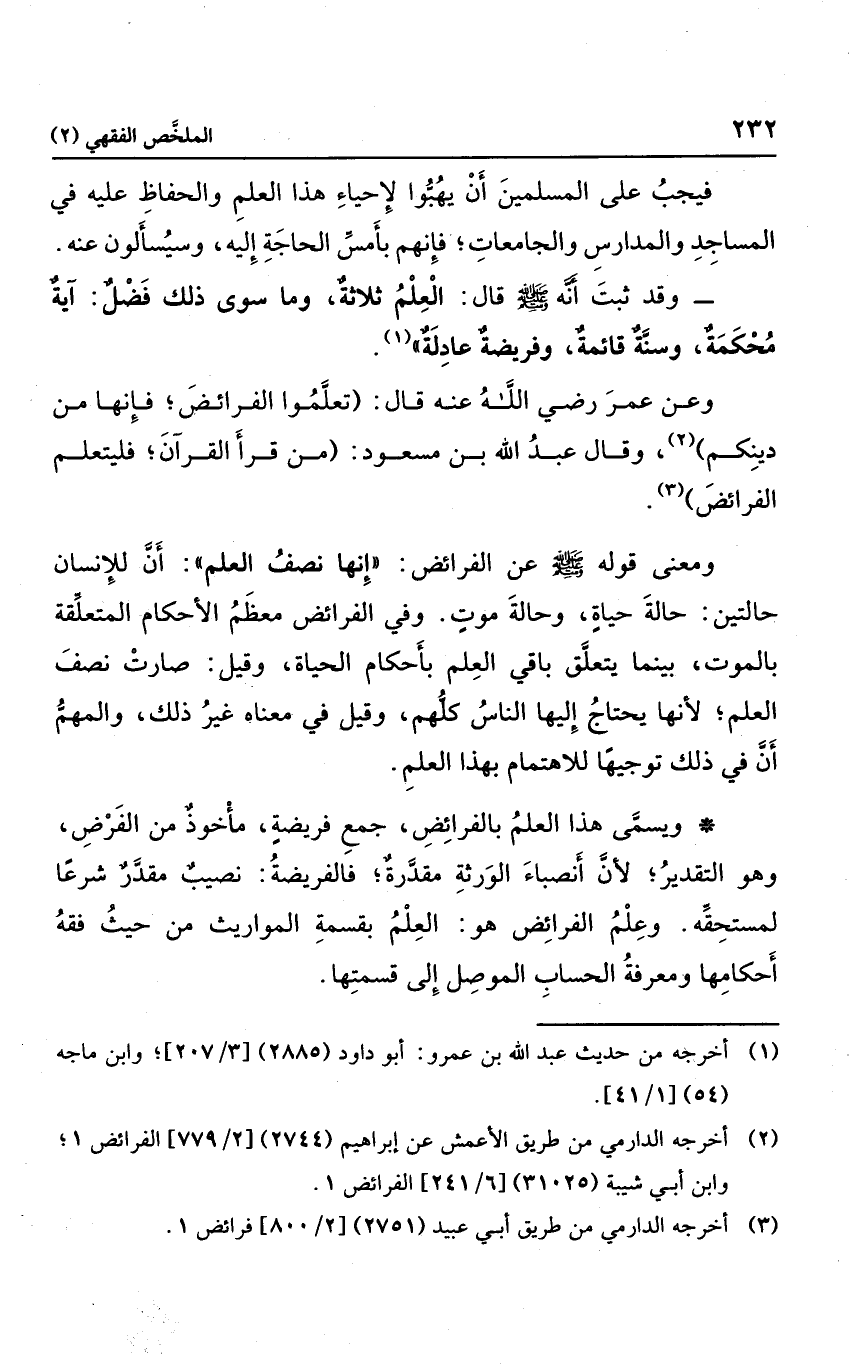 ٢٣٢
الملخَّص الفقهي (٢)
فيجبُ على المسلمينَ أَنْ يهُبُّوا لِإحياءِ هذا العلمِ والحفاظِ عليه في
المساجِدِ والمدارسِ والجامعاتِ؛ فإنهم بأَمسِّ الحاجَةِ إليه، وسيُسأَلون عنه.
ــ وقد ثبتَ أنَّه ﷺ قال: الْعِلْمُ ثلاثةٌ، وما سوى ذلك فَضْلٌ: آيةٌ
مُحْكَمَةٌ، وسنَّةٌ قائمةٌ، وفريضةٌ عادِلَةٌ»(١).
وعـن عمـرَ رضـي اللَّـهُ عنـه قـال: (تعلَّمُـوا الفـرائـضَ؛ فـإنهـا مـن
دينِكـم)(٢)، وقـال عبـدُ الله بـن مسعـود: (مـن قـرأَ القـرآنَ؛ فليتعلـم
الفرائضَ)(٣).
ومعنى قوله ﷺ عن الفرائض: «إنها نصفُ العلم»: أَنَّ للإنسان
حالتين: حالةَ حياةٍ، وحالةَ موتٍ. وفي الفرائض معظَمُ الأحكام المتعلِّقة
بالموت، بينما يتعلَّق باقي العِلم بأَحكام الحياة، وقيل: صارتْ نصفَ
العلم؛ لأنها يحتاجُ إليها الناسُ كلُّهم، وقيل في معناه غيرُ ذلك، والمهمُّ
أَنَّ في ذلك توجيهًا للاهتمام بهذا العلمِ.
* ويسمَّى هذا العلمُ بالفرائِضِ، جمعِ فريضةٍ، مأْخوذٌ من الفَرْضِ،
وهو التقديرُ؛ لأنَّ أَنصباءَ الوَرثةِ مقدَّرةٌ؛ فالفريضةُ: نصيبٌ مقدَّرٌ شرعًا
لمستحِقِّه. وعِلْمُ الفرائِض هو: العِلْمُ بقسمةِ المواريث من حيثُ فقهُ
أَحكامِها ومعرفةُ الحسابِ الموصِل إلى قسمتِها.
(١) أخرجه من حديث عبد الله بن عمرو: أبو داود (٢٨٨٥) [٣/ ٢٠٧]؛ وابن ماجه
(٥٤) [١/ ٤١].
(٢) أخرجه الدارمي من طريق الأعمش عن إبراهيم (٢٧٤٤) [٢/ ٧٧٩] الفرائض ١؛
وابن أبـي شيبة (٣١٠٢٥) [٦/ ٢٤١] الفرائض ١.
(٣) أخرجه الدارمي من طريق أبـي عبيد (٢٧٥١) [٢/ ٨٠٠] فرائض ١.